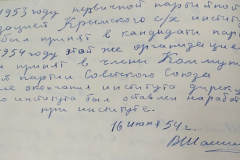 1953 году первичной партийной
зацией Крымского с/х института
был принят в кандидаты пар
1954 году этой же организаци
принят в члены Комму
партии Советского Союза
окончания института дирек
института был оставлен на работ
при институте.
16 июня 54 г.